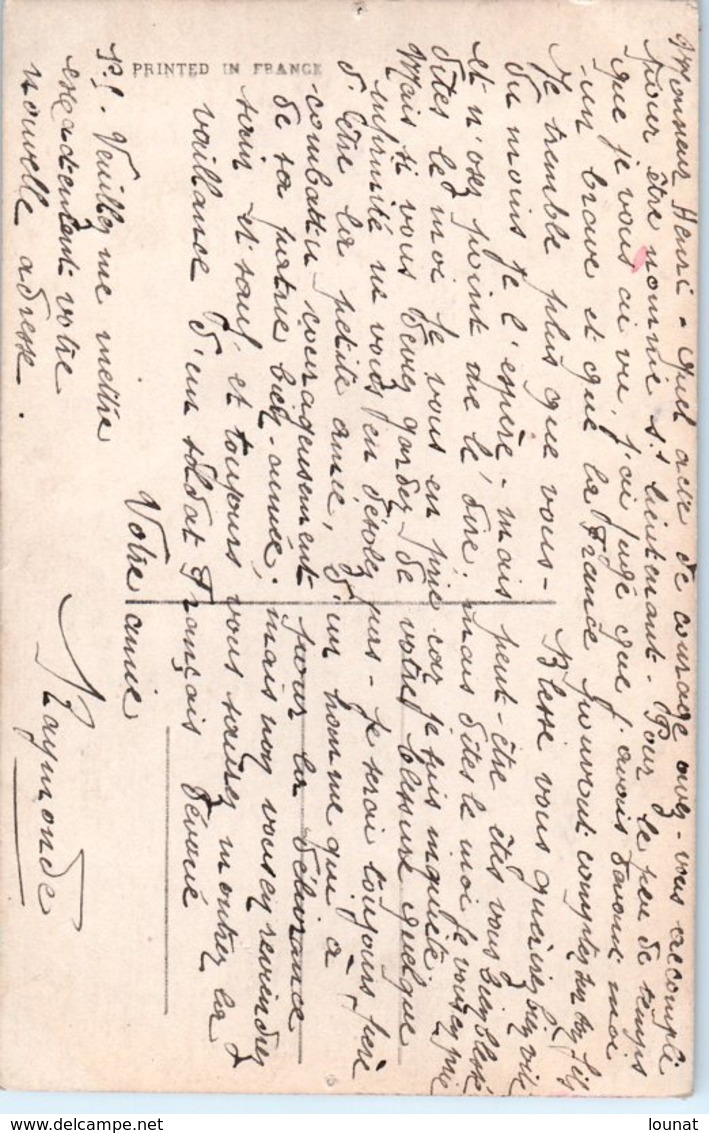 Monsieur Henri - Quel acte de courage avez-vous accompli
pour être nommé s/s lieutenant - Pour le peu de temps
que je vous ai vu, j'ai jugé que j'avais devant moi
un brave et que la France pouvait compter sur ses fils
Je tremble plus que vous - Blessé vous guérirez bien vite
du moins je l'espère, - mais peut-être êtes vous bien blessé
et n'osez point me le dire; mais dites le moi je vous en prie
dites le moi je vous en prie car je suis inquiète
Mais si vous devez garder de votre blessure quelque
infirmité ne vous en désolez pas - je serai toujours fière
d'être la petite amie, d'un homme qui a
combattu courageusement pour la délivrance
de sa patrie bien-aimée; mais non vous en reviendrez
sain et sauf et toujours vous saurez montrer la
vaillance d'un soldat Français dévoué
Votre amie
Raymonde
P.S. Veuillez me mettre
exactement votre
nouvelle adresse.
PRINTED IN FRANCE
lounat